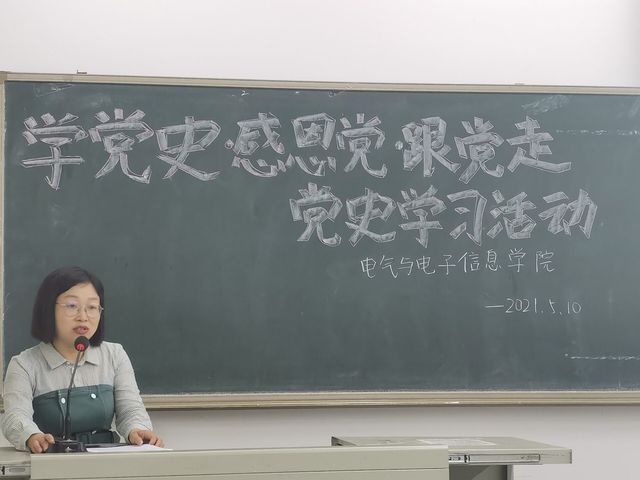 学党史·感恩党·跟党走
党史学习活动
电气与电子信息学院
—2021.5.10